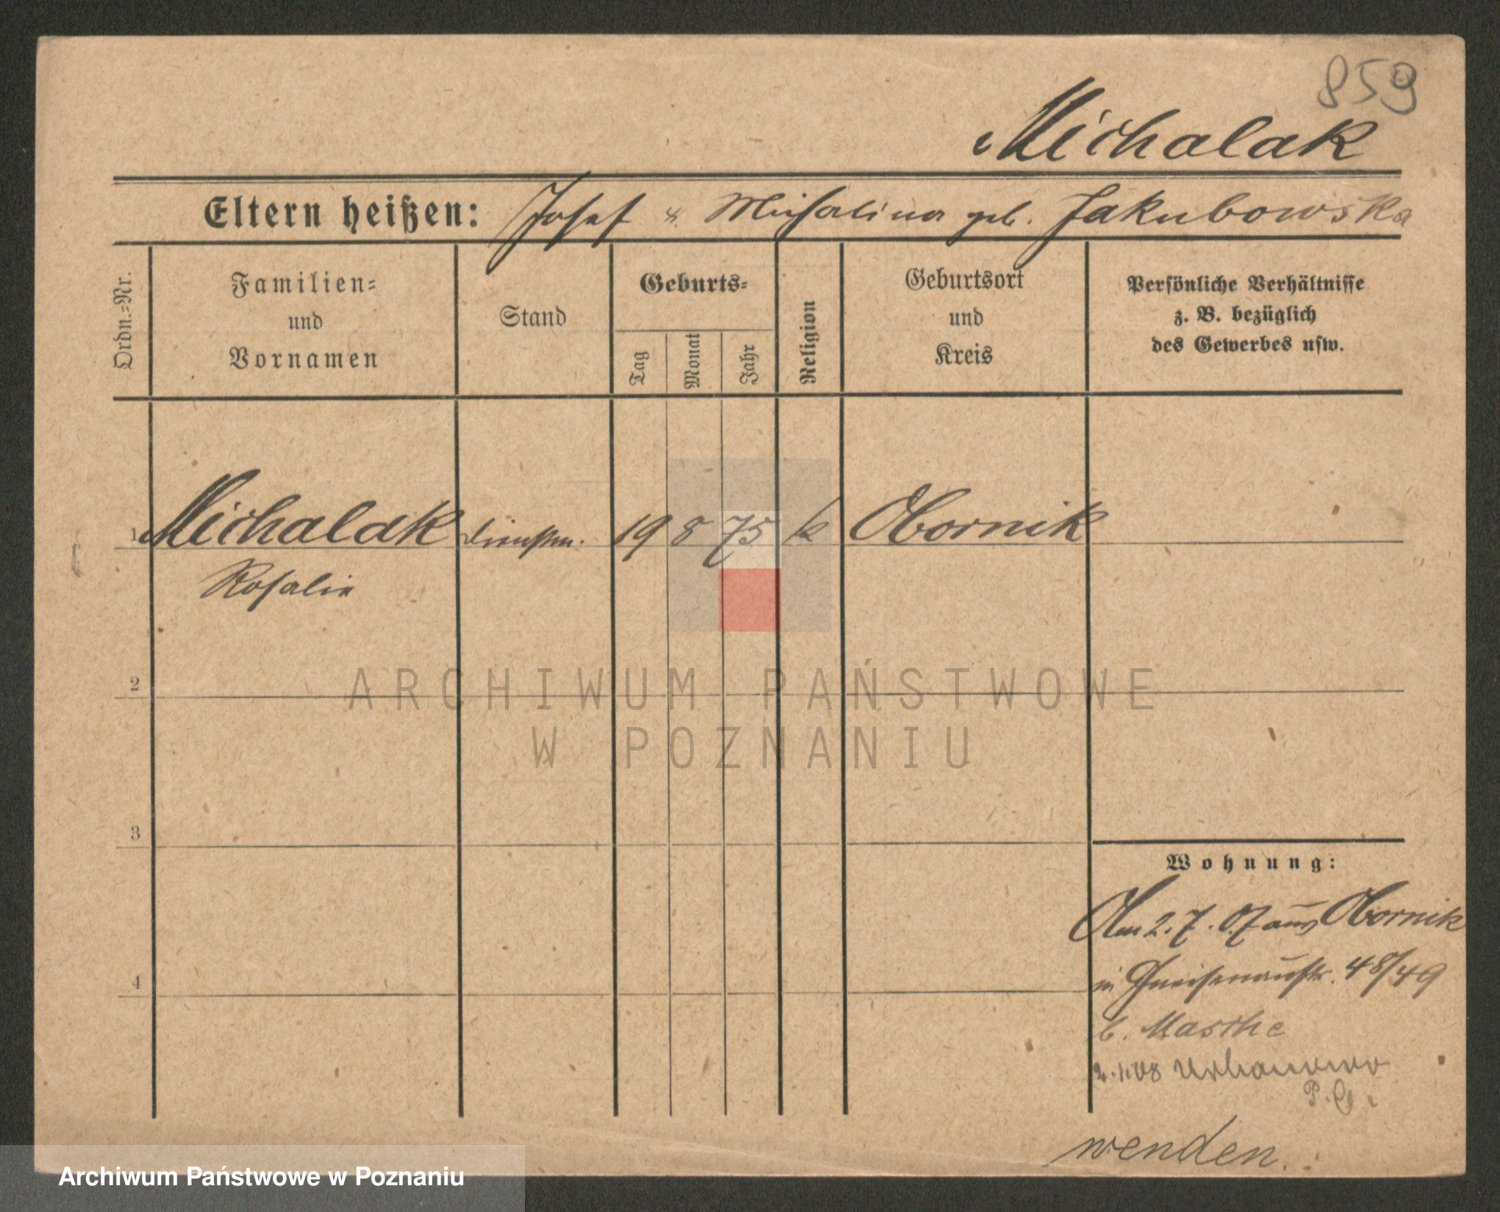 859
Michalak
Eltern heißen: Josef & Michalina geb. Jakubowska
Ordn.-Nr.
Familien-
und
Vornamen
Stand
Geburts-
Tag
Monat
Jahr
Religion
Geburtsort
und
Kreis
Persönliche Verhältnisse
z. B. bezüglich
des Gewerbes usw.
1 Michalak dienstm. 19 8 75 k Obornik
Rosalie
2
3
4
Wohnung:
Am 2.7.07 aus Obornik
in Gneisenaustr. 48/49
b. Masche
2.1.08 Urbanowo
P. O.
wenden.
ARCHIWUM PAŃSTWOWE
W POZNANIU
Archiwum Państwowe w Poznaniu